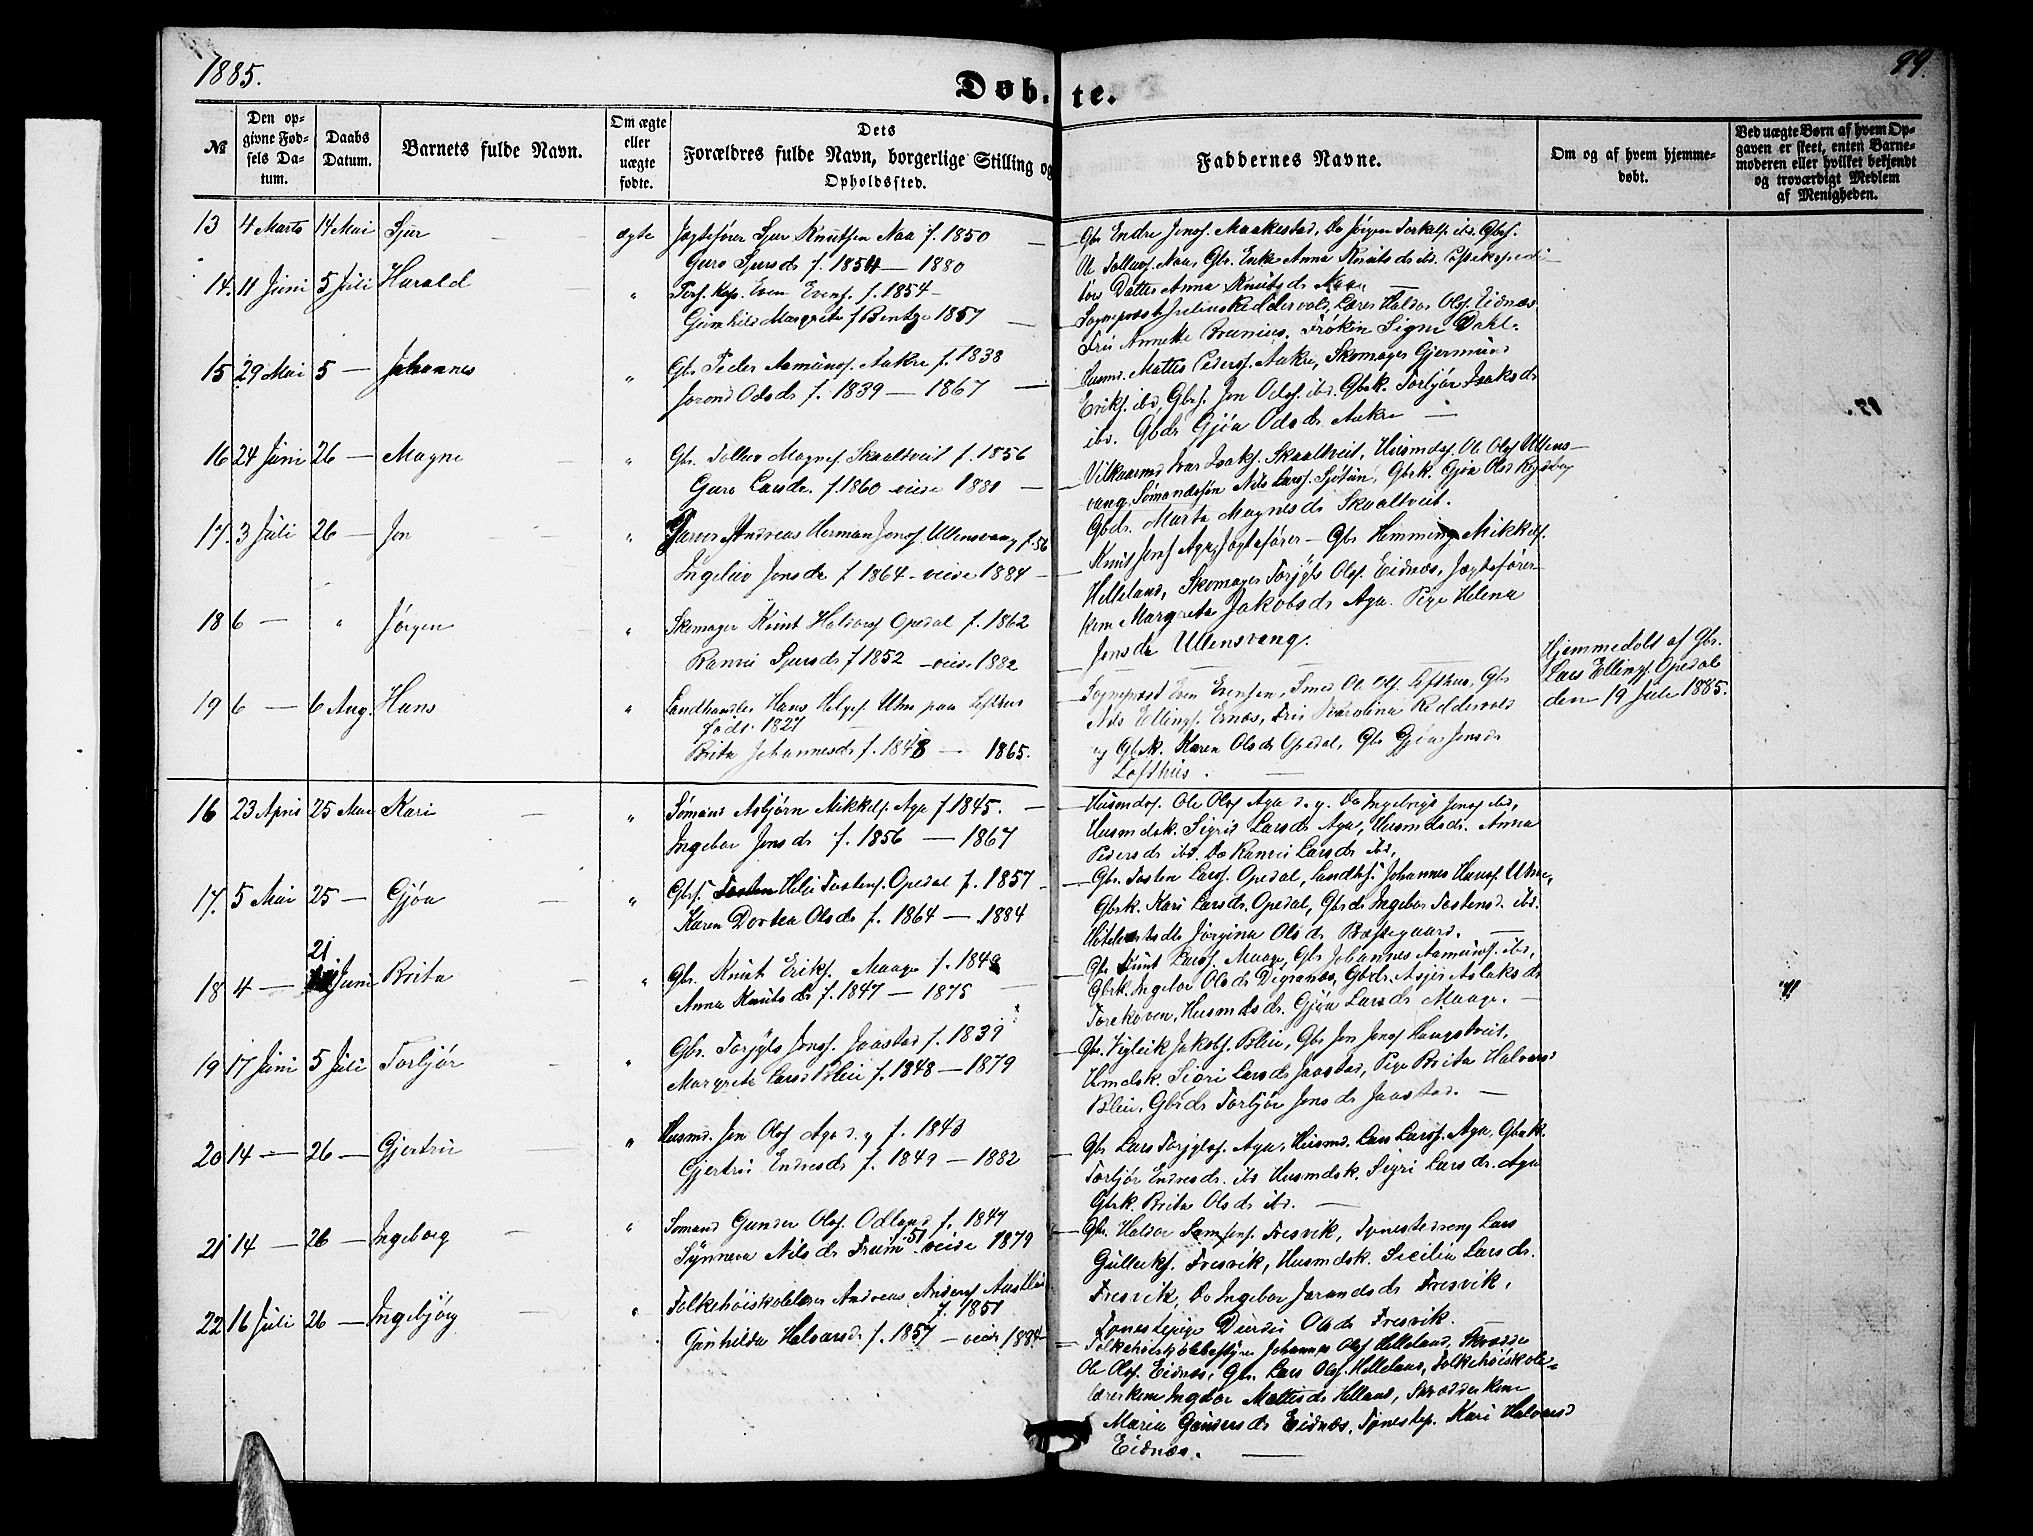 1885.
99.
Døbte.
№
Den opgivne Fødsels Datum.
Daabs Datum.
Barnets fulde Navn.
Om ægte eller uægte fødte.
Dets Forældres fulde Navn, borgerlige Stilling og Opholdssted.
Faddernes Navne.
Om og af hvem hjemmedøbt.
Ved uægte Børn af hvem Opgaven er skeet, enten Barnemoderen eller hvilket bekjendt og troværdigt Medlem af Menigheden.
13 4 Marts 14 Mai Sjur ægte Jagtefører Sjur Knutsen Naa f. 1850
Guro Sjursdr f. 1854 — 1880
Gbr Endre Jonss. Maakestad, Do Jørgen Torkels. ibd. Gbrs.
Ol Tollevs. Naa, Gbr. Enke Anna Knutsdr ibd.
Datter Anna Knutsdr Naa —
14. 11 Juni 5 Juli Harald " Pers. Kap. Even Evens. f. 1854 —
Gunhild Margrete f Bentzen 1857
Sogneprest Reddervold, Lærer Haldor Ols. Eidnæs
Fru Annette Frøken Signe Dahl.
15 29 Mai 5 — Johannes " Gbr Peder Aamunds. Aakre f. 1838
Jorond Odsdr f. 1839 — 1867 —
Husmd. Mattis Peders. Aakre, Skomager Gjermund
Eriks. ibd, Gbrs. Jon Ods. ibd. Gbrk. Torbjør Isaksdr
ibd. Gbdr Gjøa Odsdr Aakre —
16 24 Juni 26 — Magne " Gbr. Tollev Magnes. Skaaltveit f. 1856
Guro Larsdr. f. 1860 viede 1881 —
Vilkaarsmd Ivar Isaks. Skaaltveit, Husmds. Ol Ols. Ullens-
vang, Sømandssøn Nils Larss. Sjotun, Gbrk. Gjøa Olsd
Gbdr. Marta Magnesdr Skaaltveit.
17. 3 Juli 26 — Jon " Garver Andreas Herman Jons. Ullensvang f. 56
Ingeleiv Jonsdr f 1864 — viede 1884 —
Knut Jons Aga, Jagtefører — Gbr Hemming Mikkels.
Helleland, Skomager Torgils Ols. Eidnæs, Jagtefører-
kone Margreta Jakobsdr Aga. Pige Helena
Jonsdr Ullensvang.
18 6 — " Jørgen " Skomager Knut Haldors. Opedal f. 1862
Ranvei Sjursdr f 1852 — viede 1882
Hjemmedøbt af Gbr.
Lars Ellings. Opedal
den 19 Juli 1885.
19 6 — 6 Aug. Hans " Landhandler Hans Helges. Utne paa Lofthus
født 1827
Brita Johannesdr f. 1848 — 1865.
Sogneprest Even Evensen, Smed Ol Ols. Lofthus, Gbr
Nils Ellings. Ernæs, Fru Karolina Reddervold
og Gbrk. Karen Olsdr Opedal, Gbr Gjøa Jonsdr
Lofthus. —
16 23 April 25 Mai Kari — " Sømand Asbjørn Mikkels. Aga f 1845. —
Ingebor Jonsdr f. 1856 — 1867
Husmds. Ole Ols. Aga d. y. Do Ingebrigt Jons. ibd,
Husmdsk. Sigrid Larsdr Aga, Husmdsdr. Anna
Pedersdr ibd. Do Ranvei Larsdr ibd,
17. 5 Mai 25 — Gjøa — " Gbrs. Helje Tostens. Opedal f. 1857 —
Karen Dortea Olsdr f. 1864 — 1884
Gbr. Tosten Larss. Opedal, Landhs. Johannes Hanss. Utne,
Gbrk. Kari Larsdr. Opedal, Gbrdr Ingebor Tostensd. ibd.
Jørgina Olsdr —
18 4 — 21 Juni Brita — " Gbr. Knut Eriks. Maage f. 1849
Anna Knutsdr f. 1847 — 1875 —
Gbr. Knut Larss. Maage, Gbr Johannes Aamunds. ibd,
Gbrk. Ingebor Olsdr Digranæs, Gbrdr. Asjer Aslaksdr
Torekoven, Husmdsdr. Gjøa Larsdr Maage. —
19 17 Juni 5 Juli Torbjør — " Gbr. Torgils Jons. Jaastad f. 1839
Margreta Larsd Bleie f. 1848 — 1879
Gbr. Vigleik Jakobs. Bleie, Gbr Jon Jons Haugstveit,
Hmdsk. Sigri Larsdr Jaastad, Pige Brita Halvorsd
Bleie, Gbrdr Torbjør Jonsdr Jaastad. —
20 14 — 26 — Gjertrui " Husmd. Jon Ols. Aga d. y f. 1843
Gjertrui Endresdr f. 1849 — 1882
Gbr Lars Torgils. Aga, Husmd. Lars Larss. Aga, Gbrk.
Torbjør Endresdr. ibd Husmdsk. Sigri Larsdr. Aga
Gbrk Brita Olsdr ibd. —
21 14 — 26 — Ingeborg — " Sømand Gunder Ols. Odland f. 1847
Synneva Nilsdr Freim 51 viede 1879
Gbr. Haldor Samsons. Fresvik, Tjenestedreng Lars
Gulleiks. Fresvik, Husmdsk. Sicilia Larsdr.
Fresvik, Do Ingebor Jarandsdr Fresvik,
Tjenestepige Durdei Olsdr Fresvik.
22 16 Juli 26 — Ingebjørg " Folkehøiskolelærer Andreas Anders.
f. 1851
Gunhilda Halvorsdr f. 1857 — viede 1884
Folkehøiskolebestyrer Johannes Ols. Helleland, Skrædder
Ole Ols. Eidnæs, Gbr. Lars Ols. Helleland, Folkehøiskole-
lærerkone Ingebor Mattisdr Helland, Skrædderkone
Maria Gundersdr Eidnæs, Tjenestep. Kari Halvorsd
Eidnæs. —